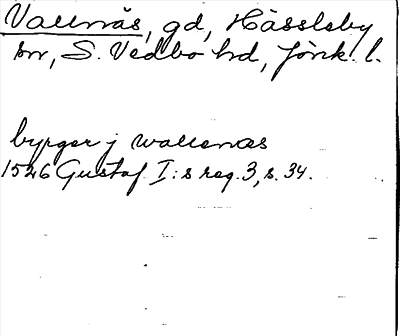 Vallnäs, gd, Hässleby
sn, S. Vedbo hd, Jönk. l.
byrger j wallenæs
1526 Gustaf I:s reg. 3, s. 34.